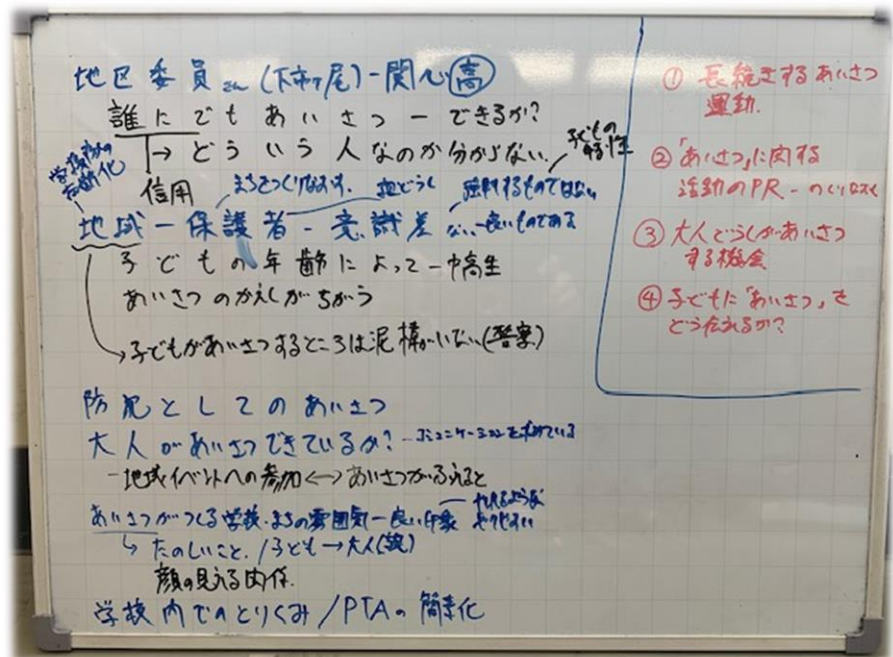 地区委員さん(下市ヶ尾)-関心高
誰にでもあいさつ-できるか?
→どういう人なのか分からない.
子どもの特性
信用
まちをつくりなおす.
強制するものではない
地域-保護者-意識差
ない.-良いものである
子どもの年齢によって-中高生
あいさつのかえしがちがう
→子どもがあいさつするところは泥棒がいない(警察)
防犯としてのあいさつ
大人があいさつできているか?-コミュニケーションを求めている
-地域イベントへの参加<->あいさつがふえると
あいさつがつくる学校・まちの雰囲気-良い印象
→たのしいこと./子ども→大人(親)
顔の見える関係.
学校内でのとりくみ/PTAの簡素化
① 長続きするあいさつ
運動.
② 「あいさつ」に関する
活動のPR-
③ 大人どうしがあいさつ
する機会
④ 子どもに「あいさつ」を
どう伝えるか?